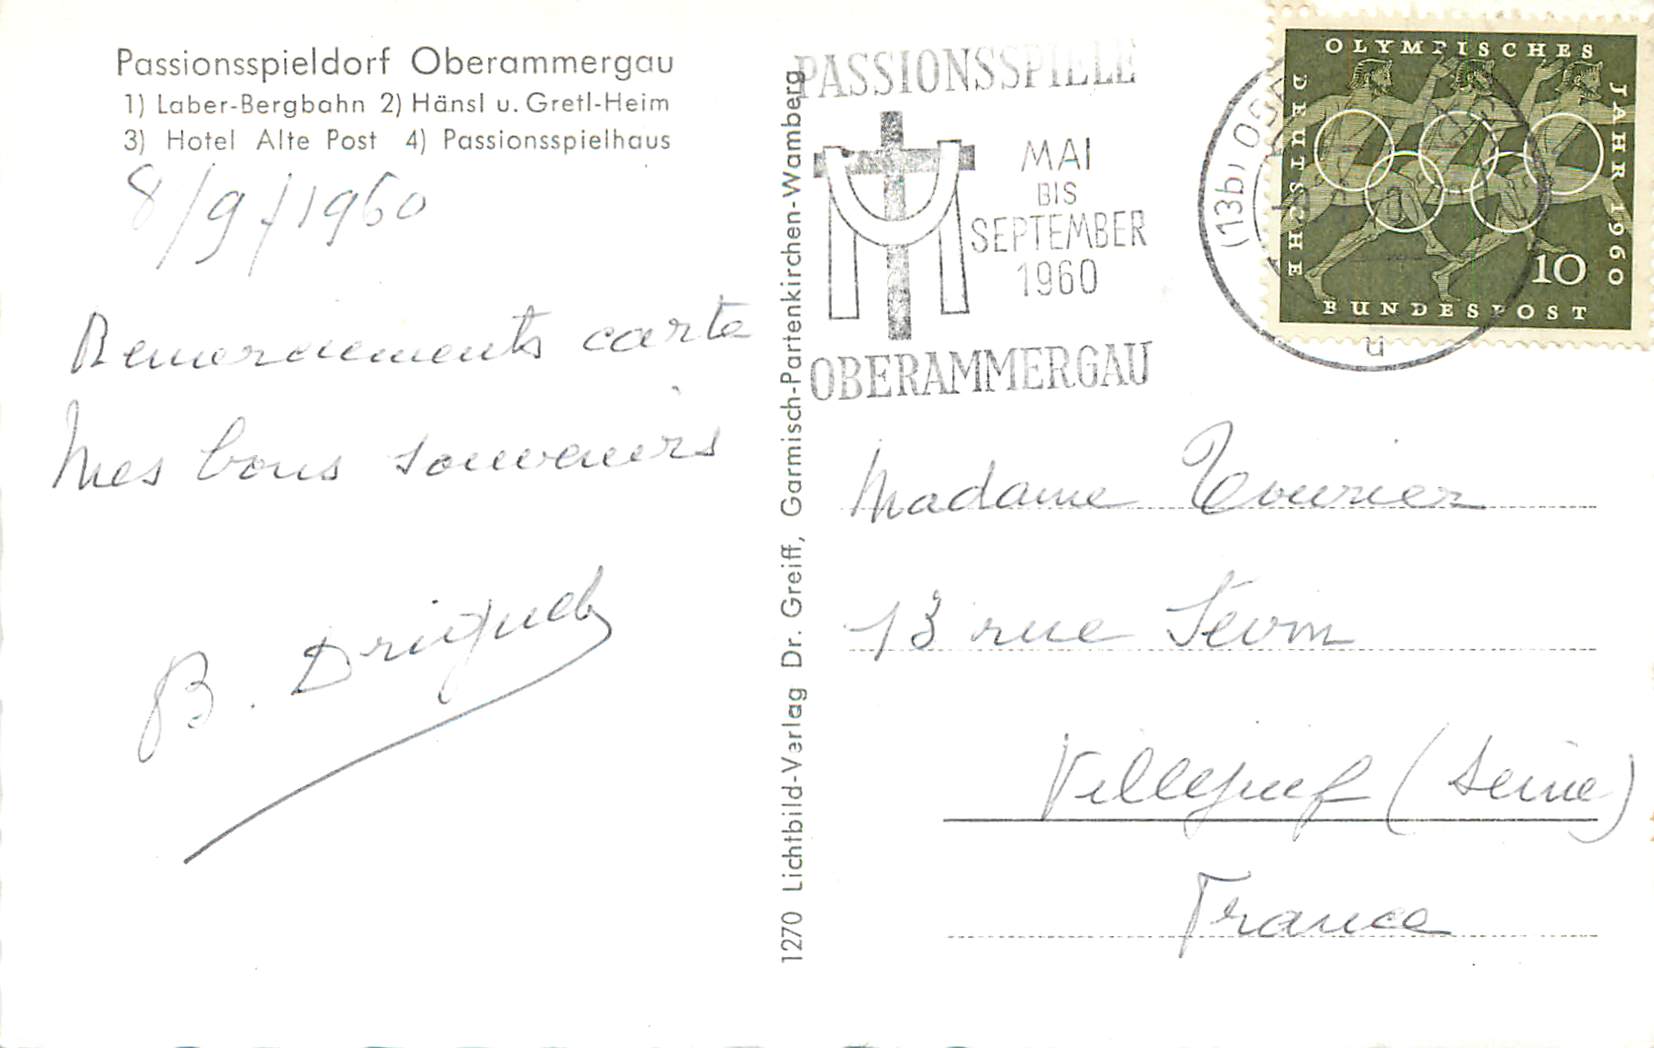 Passionsspieldorf Oberammergau
1) Laber-Bergbahn 2) Hänsl u. Gretl-Heim
3) Hotel Alte Post 4) Passionsspielhaus
8/9/1960
Remerciements carte
Mes bons souvenirs
B.
1270 Lichtbild-Verlag Dr. Greiff, Garmisch-Partenkirchen-Wamberg
PASSIONSSPIELE
MAI
BIS
SEPTEMBER
1960
OBERAMMERGAU
(13b)
OLYMPISCHES
JAHR 1960
DEUTSCHE
BUNDESPOST
10
Madame
13 rue
Villejuif (Seine)
France